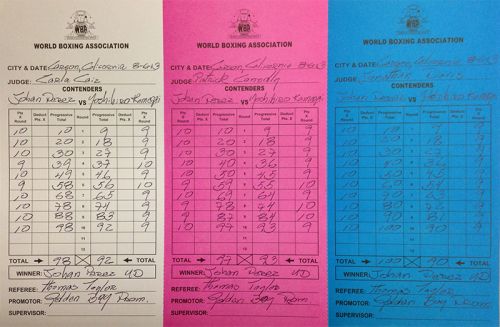 WORLD BOXING ASSOCIATION
CITY & DATE: Carson, California 8-6-13
JUDGE: Carla Caiz
CONTENDERS
Johan Perez VS Yoshihiro Kamegai
Pts. X Round Deduct Pts. X Progressive Total Round Progressive Total Deduct Pts. X Pts. X Round
10 10 1 9 9
10 20 2 18 9
10 30 3 27 9
9 39 4 37 10
10 49 5 46 9
9 58 6 56 10
10 68 7 65 9
10 78 8 74 9
10 88 9 83 9
10 98 10 92 9
11
12
TOTAL 98 92 TOTAL
WINNER: Johan Perez UD
REFEREE: Thomas Taylor
PROMOTOR: Golden Boy Prom.
SUPERVISOR:
WORLD BOXING ASSOCIATION
CITY & DATE: Carson, California 8-6-13
JUDGE: Patrick
CONTENDERS
Johan Perez VS Yoshihiro Kamegai
Pts. X Round Deduct Pts. X Progressive Total Round Progressive Total Deduct Pts. X Pts. X Round
10 10 1 9 9
10 20 2 18 9
10 30 3 27 9
10 40 4 36 9
10 5 45 9
9 6 55 10
10 69 7 64 9
9 78 8 74 10
9 87 9 84 10
10 97 10 93 9
11
12
TOTAL 97 93 TOTAL
WINNER: Johan Perez UD
REFEREE: Thomas Taylor
PROMOTOR: Golden Boy Prom.
SUPERVISOR:
WORLD BOXING ASSOCIATION
CITY & DATE: Carson, California 8-6-13
JUDGE: Jonathan
CONTENDERS
Johan Perez VS Yoshihiro Kamegai
Pts. X Round Deduct Pts. X Progressive Total Round Progressive Total Deduct Pts. X Pts. X Round
10 10 1 9 9
10 20 2 18 9
10 30 3 27 9
10 40 4 36 9
10 50 5 45 9
10 60 6 54 9
10 70 7 63 9
10 80 8 72 9
10 90 9 81 9
10 100 10 90 9
11
12
TOTAL 100 90 TOTAL
WINNER: Johan Perez UD
REFEREE: Thomas Taylor
PROMOTOR: Golden Boy Prom.
SUPERVISOR: